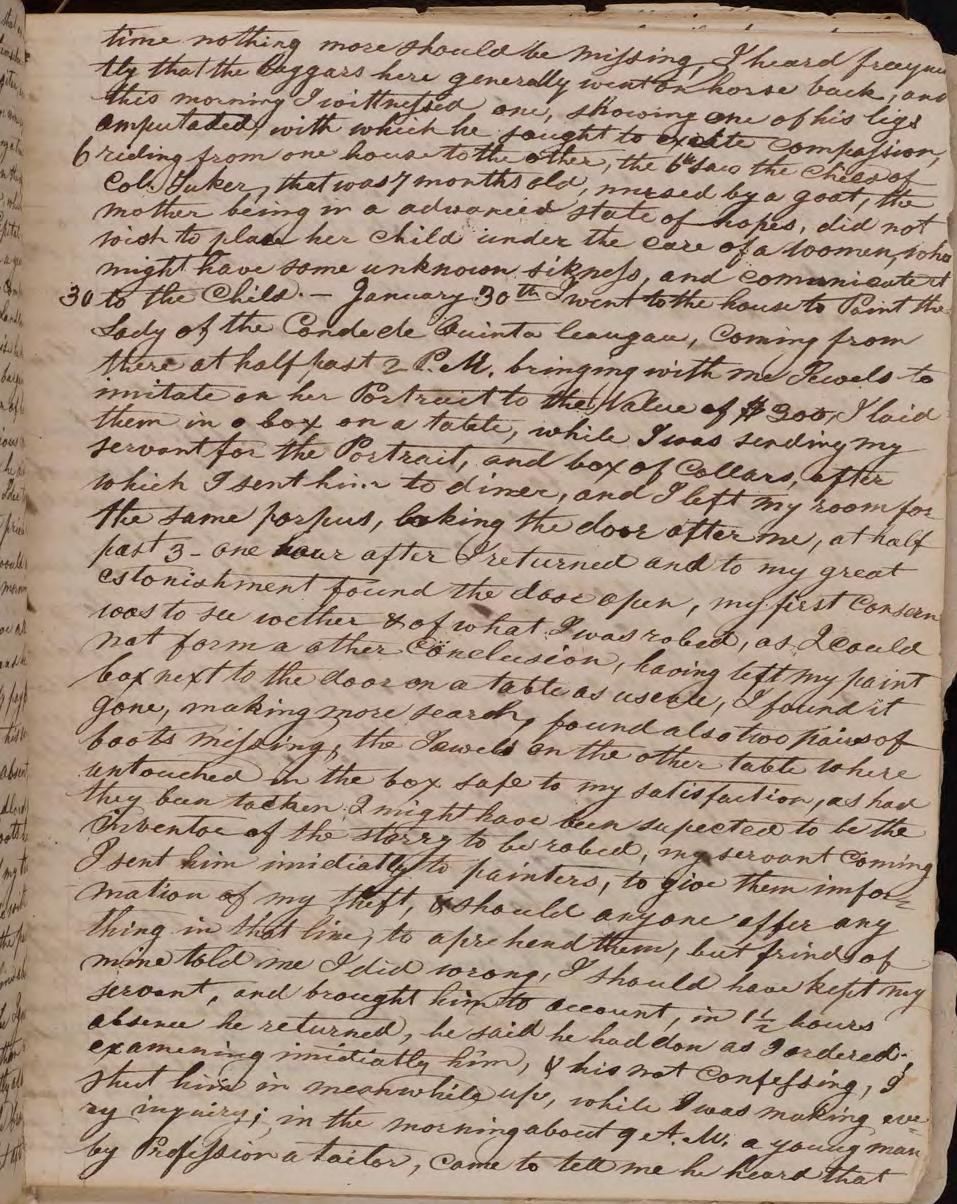 time nothing more should be missing, I heard frequen
tly that the baggars here generally went on horse back, and
this morning I wittnessed one, showing one of his legs
amputaded, with which he sought to exite compassion,
6 riding from one house to the other, the 6th saw the Child of
Col. Tuker, that was 7 months old, nursed by a goat, the
mother being in a advanced state of hopes, did not
wish to place her child under the care of a women, who
might have some unknown sikness, and comunicate it
30 to the Child. — January 30th I went to the house to Paint the
Lady of the Conde de Quinta , Coming from
there at half past 2 P.M. bringing with me Jewels to
imitate on her Portrait to the Value of $ 300, I laid
them in a box on a table, while I was sending my
servant for the Portrait, and box of Collars, after
which I sent him to diner, and I left my room for
the same porpus, loking the door after me, at half
past 3 - one hour after I returned and to my great
estonishment found the dore open, my first Consern
was to see wether & of what I was robed, as I could
not form a other Conclusion, having left my paint
box next to the door on a table as useale, I found it
gone, making more search, found also two paires of
boots missing, the Jewels on the other table where
untouched in the box safe to my satisfaction, as had
they been tacken I might have been supected to be the
inventor of the storry to be robed, my servant Coming
I sent him imidiatly to painters, to give them imfor=
mation of my theft, & should anyone offer any
thing in that line, to aprehend them, but frinds of
mine told me I did wrong, I should have kept my
servant, and brought him to account, in 1½ hours
absence he returned, he said he had don as I ordered;
examening imidiatly him, & his not Confessing, I
shut him in meanwhile up, while I was making eve=
ry inquiry; in the morning about 9 A.M. a young man
by Proffession a tailor, came to tell me he heard that